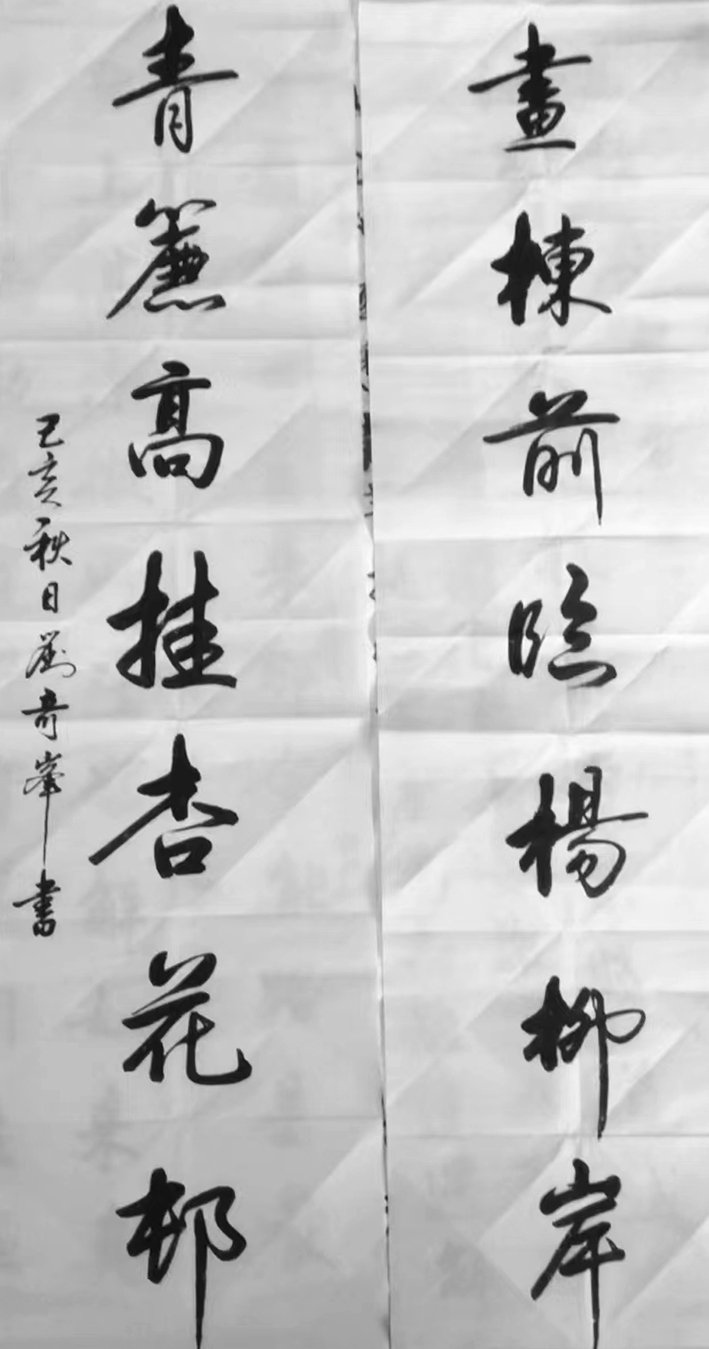 畫棟前臨楊柳岸
青簾高挂杏花邨
己亥秋日劉奇峯書